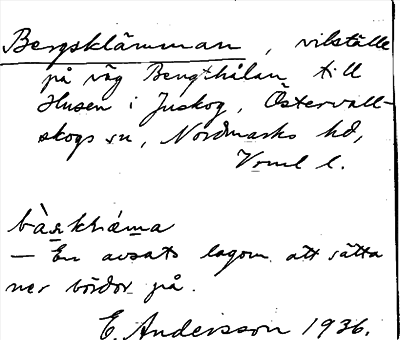 Bergsklämman, vilställe
på väg Bengthålan till
Husen i Juskog, Östervall-
skogs sn, Nordmarks hd,
Vrml l.
bàskhæma
— En avsats lagom att sätta
ner bördor på.
E. Andersson 1936.